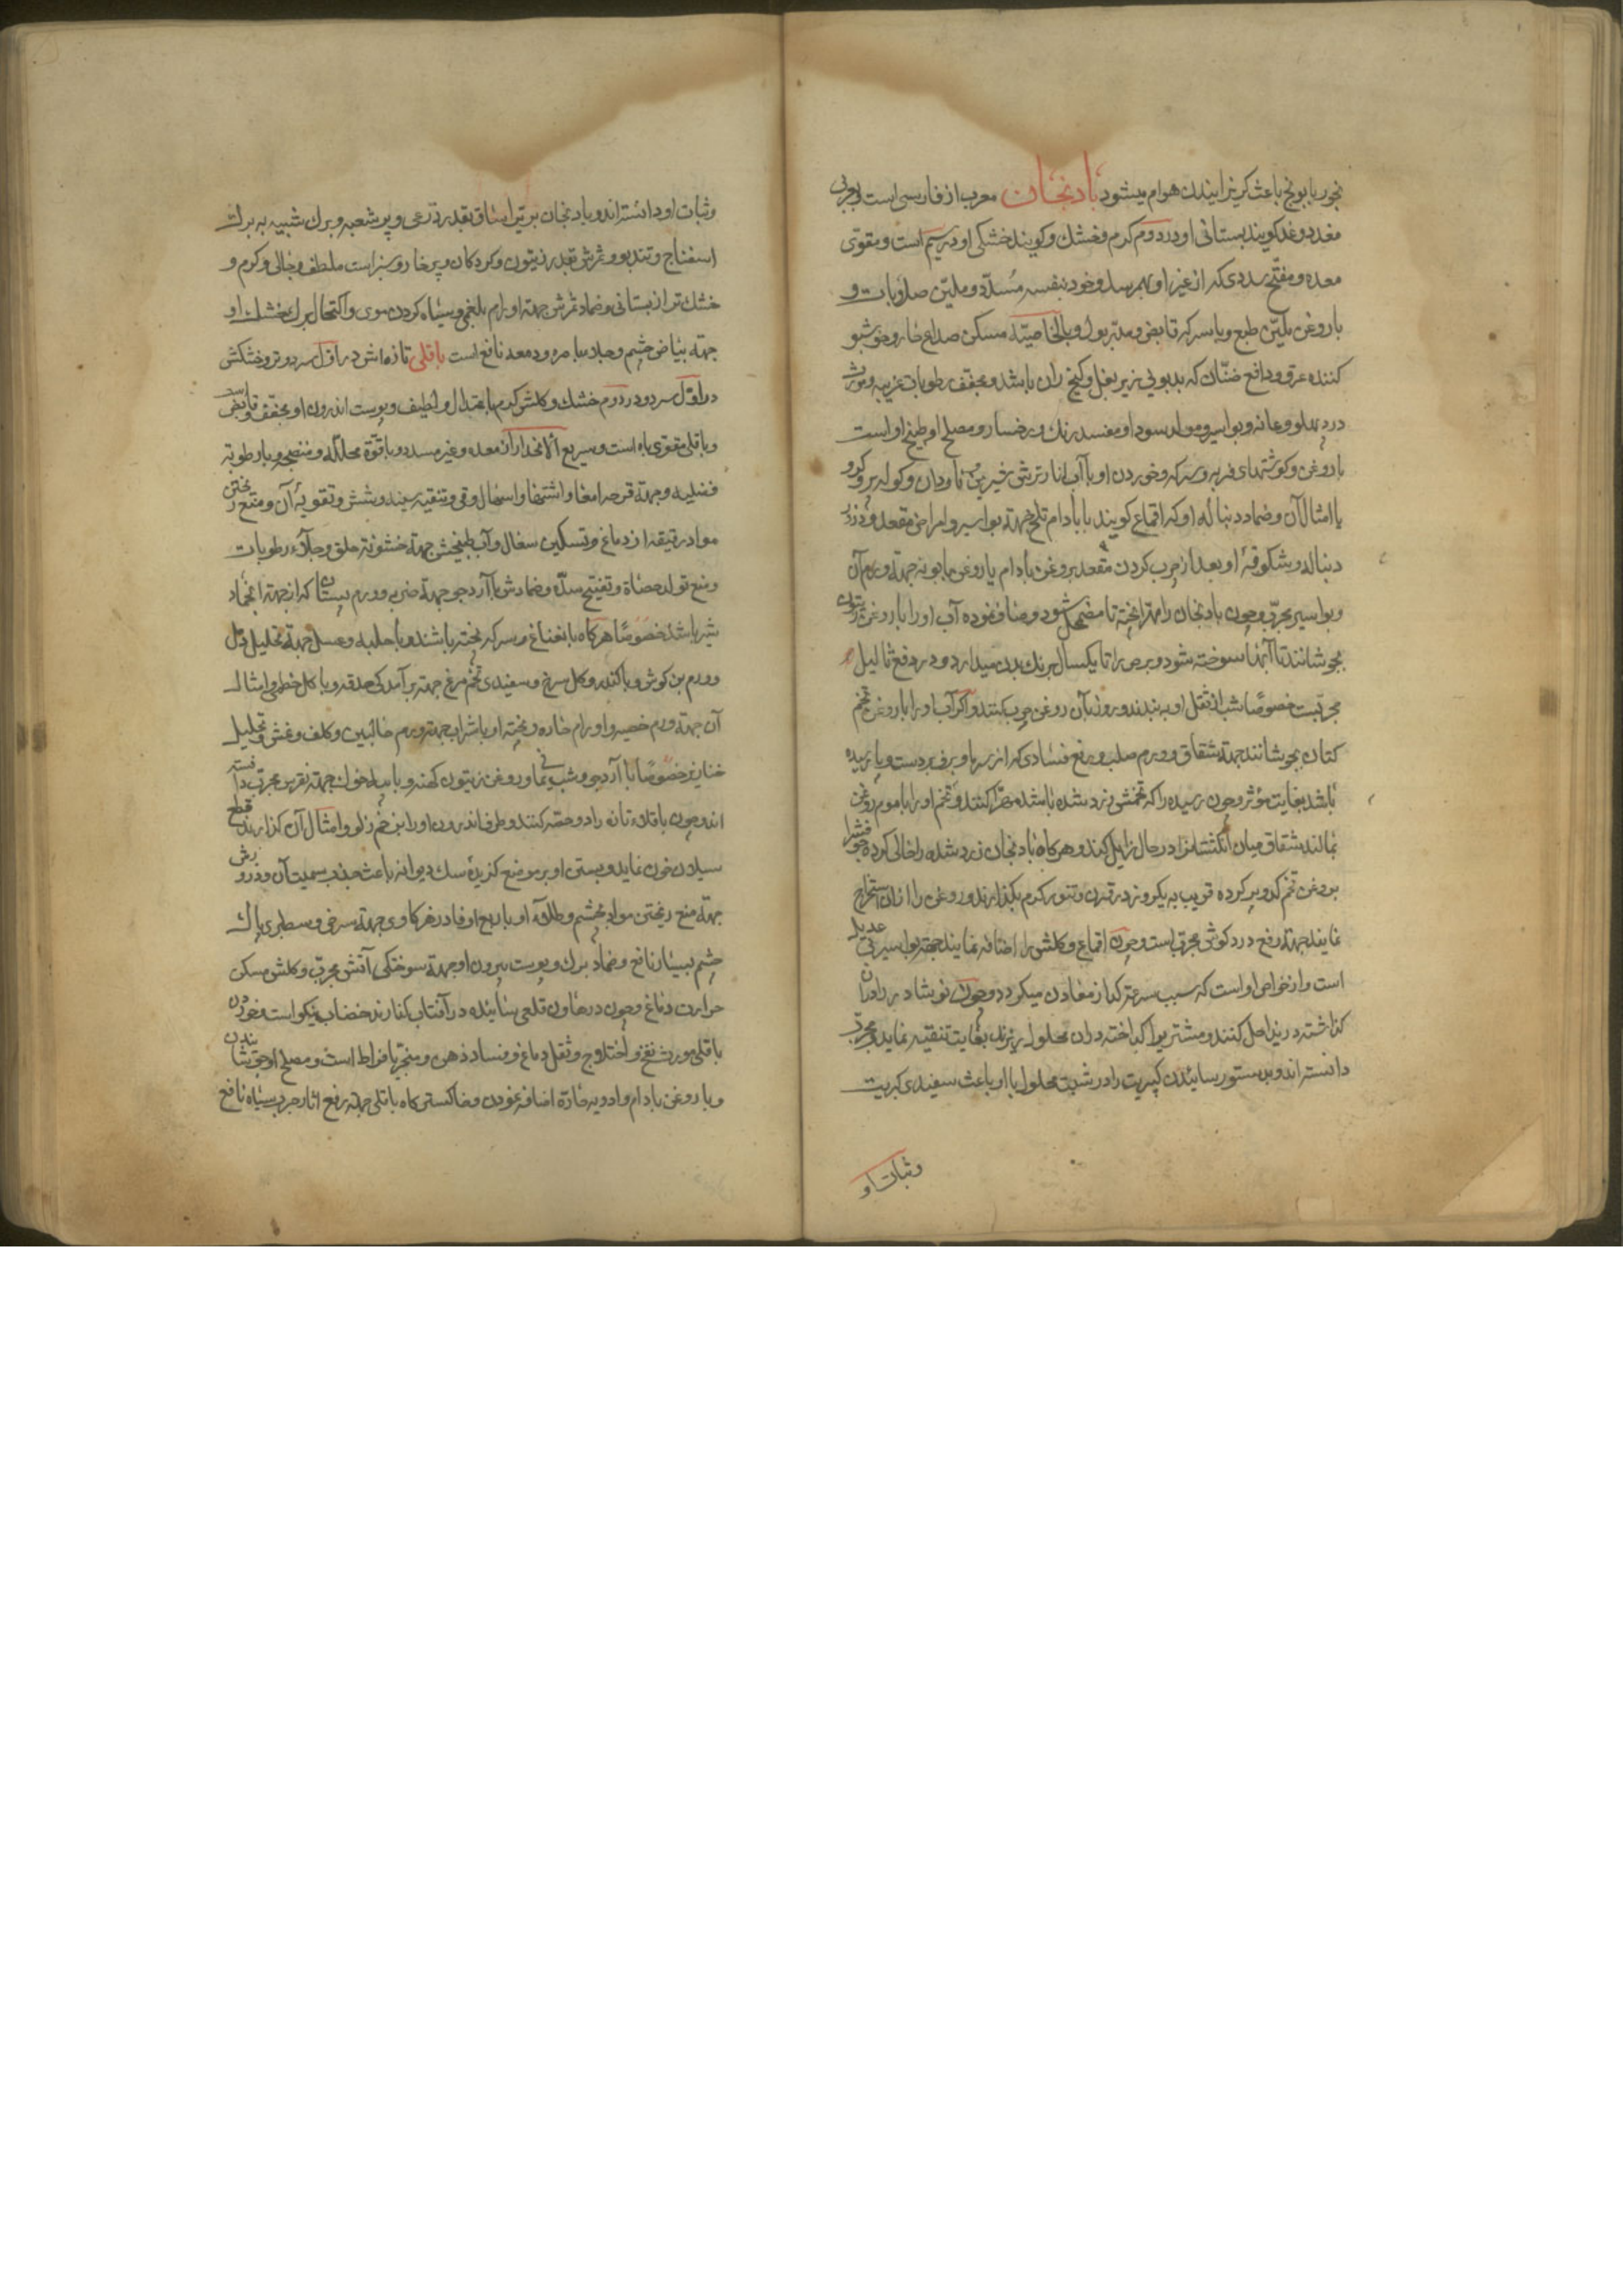 بخور بابونج باعث کریزانیدن هوام میشود بادنجان معرب از فارسی است و بعربی
مغد و وغد کویند بستانی او در دوم کرم و خشک و کویند خشکی او در سیم است و مقوّی
معده و مفتّح سددی که از غیر او بهم رسد و خود بنفسه مُسدّد و ملیّن صلابات و
با روغن ملیّن طبع و با سرکه قابض و مدرّ بول و بالخاصیّة مسکن صداع حار و خوشبو
کننده عرق و دافع صنان که بدبوئی زیر بغل و کنج ران باشد و مجفف رطوبات غریبه و مورث
درد پهلو و عانه و بواسیر و مولد سودا و مفسد رنک رخسار و مصلح او طبخ او است
با روغن و کوشتهای فربه و سرکه و خوردن او با آب انار ترش و کدو
یا امثال آن و ضماد دنباله او که اقماع کویند با بادام تلخ جهة بواسیر و امراض مقعد و ذرور
دنباله و شکوفهٔ او بعد از چرب کردن مقعد بروغن بادام یا روغن بابونه جهة ورم آن
و بواسیر مجرّب و چون بادنجان را مهرا پخته تا مضمحل شود و صاف نموده آب او را با روغن زیتون
بجوشانند تا آبها سوخته شود و برص را تا یکسال برنک بدن میدارد و در رفع ثالیل
مجربست خصوصًا شب از ثفل او به بندند و روز بآن روغن چرب کنند و اکر آب او را با روغن تخم
کتان بجوشانند جهة شقاق و ورم صلب و رفع فسادی که از سرما و برف بدست و پا رسیده
باشد بغایت مؤثر و چون رسیده را که تخمش زرد شده باشد مهرا کنند و تخم او را با موم روغن
بمالند شقاق میان انکشتان را در حال زایل کند و هر کاه بادنجان زرد شده را خالی کرده جوفش را
بروغن تخم کدو پر کرده قریب به یکروز در قدری تنور کرم بکذارند و روغن را از ان استخراج
نمایند جهة رفع درد کوش مجرب است و چون اقماع و کلش را اضافه نمایند جهة بواسیر بی عدیل
است و از خواص او است که سبب سرعة کداز معادن میکردد و چون نوشادر را در ان
کذاشته در زیدا حل کنند و مشتری را کداخته در ان محلول بریزند بغایت تنقیه نماید و مجرّب
دانسته اند و بدستور سائیدن کبریت را در شبت محلول با او باعث سفیدی کبریت
وثبات او
وثبات او دانسته اند و بادنجان بری را ساق بقدر ذرعی و پر شعبه و برک شبیه به برک
اسفناج و تند بو و ثمرش بقدر زیتون و کردکان و پر خار و سبز است ملطف و جالی و کرم و
خشک تر از بستانی و ضماد ثمرش جهة اورام بلغمی و سیاه کردن موی و اکتحال برک خشک او
جهة بیاض چشم و جلاء باصره و دمعه نافع است باقلی تازه اش در اوّل سرد و تر و خشکش
در اوّل سرد و در دوم خشک و کلش کرم باعتدال و لطیف و پوست اندرون او مجفف و قابض است
و باقلی مقوی باه است و سریع الانحدار از معده و غیر مسدد و با قوّة محلله و منضجه و با رطوبة
فضلیه و جهة قرحه امعا و اشتها و اسهال و قی و تنقیه سینه و شش و تقویة آن و منع ریختن
مواد رقیقه از دماغ و تسکین سعال و آب طبخش جهة خشونة حلق و جلاء رطوبات
و منع تولد حصاة و تفتیح سدّه و ضمادش با آرد جو جهة ضربه و ورم پستان که از جهة انجماد
شیر باشد خصوصًا هر کاه با نعناع و سرکه پخته باشند و با حلبه و عسل جهة تحلیل دمّل
و ورم بن کوش و با کندر و کل سرخ و سفیدی تخم مرغ جهة برآمدکی حدقه و با کل خطمی و امثال
آن جهة ورم خصیه و اورام حاره و پخته او با شراب جهة ورم حالبین و کلف و نمش و تحلیل
خنازیر خصوصًا با آرد جو و شب یمانی و روغن زیتون کهنه و با پیه خوک جهة نقرس مجرّب دانسته
اند و چون باقلاء تازه را دو حصّه کنند و طرف اندرون او را بر زخم زلو و امثال آن کذارند قطع
سیلان خون نماید و بستن او بر موضع کزیدهٔ سک دیوانه باعث جذب سمیت آن و ذرورش
جهة منع ریختن مواد بچشم و طلاء او جهة سرخی و سطبری پلک
چشم بسیار نافع و ضماد برک و پوست بیرون او جهة سوختکی آتش مجرّب و کلش مسکن
حرارت دماغ و چون در هاون قلعی سائیده در آفتاب کذارند خضاب نیکو است و خوردن
باقلی مورث نفخ و اختلاج و ثقل دماغ و فساد ذهن و مبخر بافراط است و مصلح او جوشانیدن
و با روغن بادام و ادویه حارّه اضافه نمودن و خاکستر کاه باقلی جهة رفع اثار جرب سیاه نافع